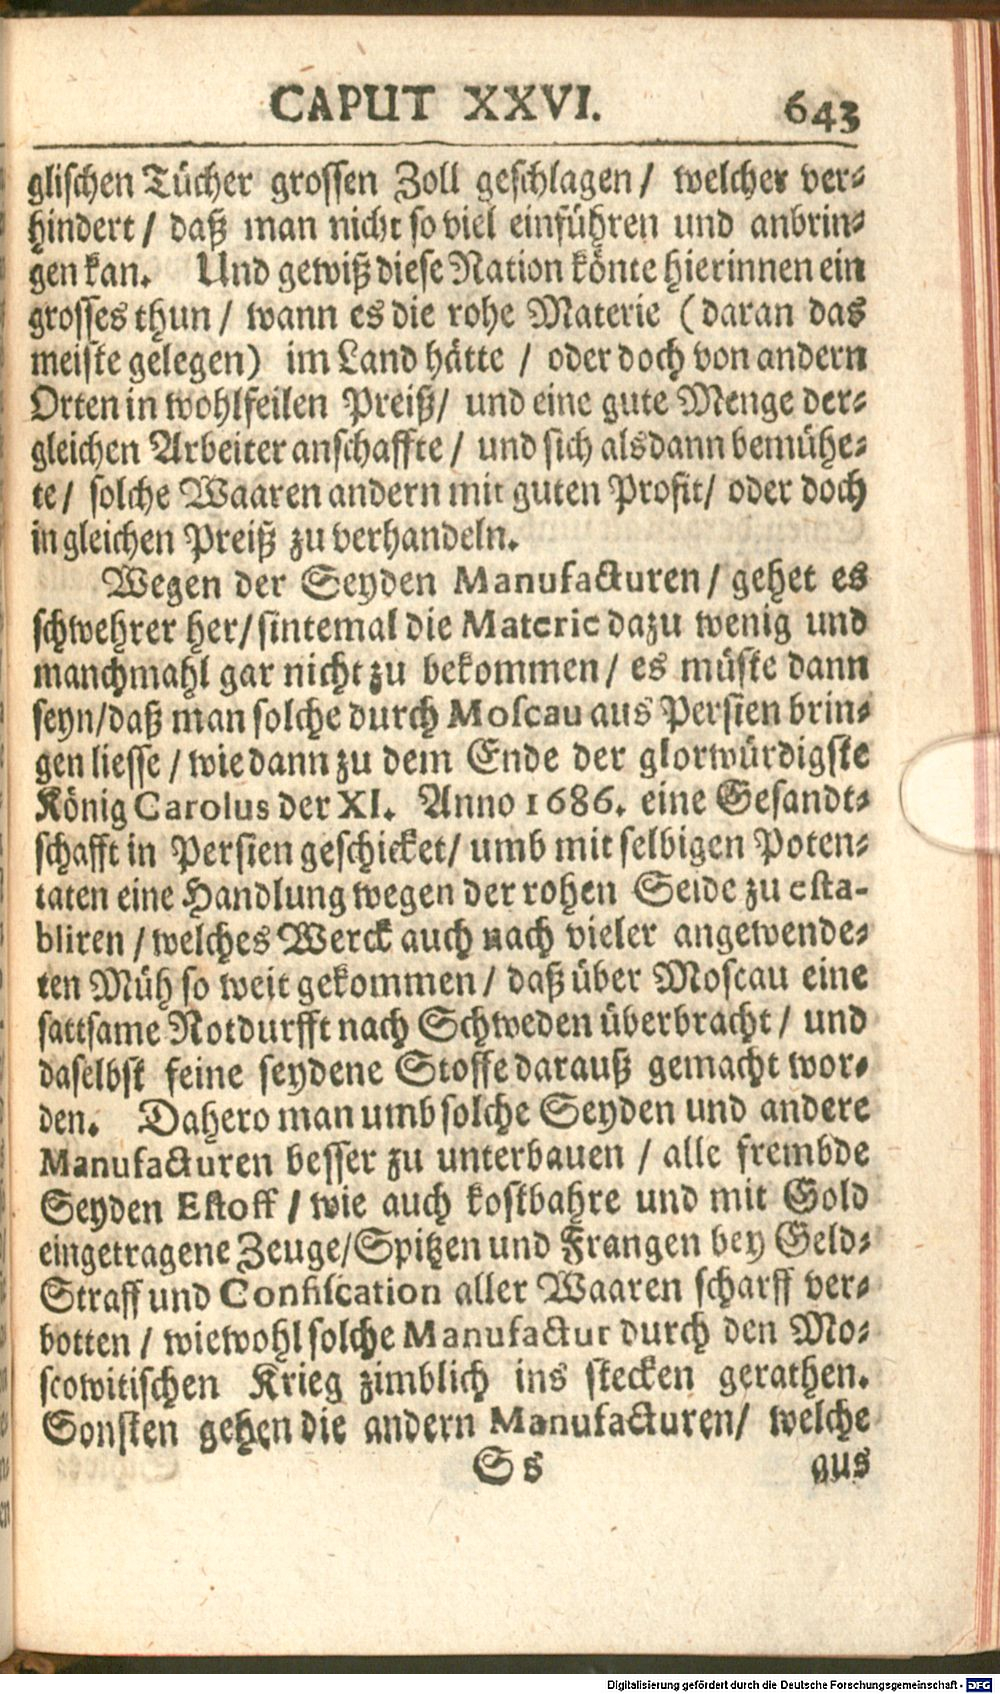 CAPUT XXVI. 643
glischen Tücher grossen Zoll geschlagen / welcher ver-
hindert / daß man nicht so viel einführen und anbrin-
gen kan. Und gewiß diese Nation könte hierinnen ein
grosses thun / wann es die rohe Materie (daran das
meiste gelegen) im Land hätte / oder doch von andern
Orten in wohlfeilen Preiß / und eine gute Menge der-
gleichen Arbeiter anschaffte / und sich alsdann bemühe-
te / solche Waaren andern mit guten Profit / oder doch
in gleichen Preiß zu verhandeln.
Wegen der Seyden Manufacturen / gehet es
schwehrer her / sintemal die Materie dazu wenig und
manchmahl gar nicht zu bekommen / es müste dann
seyn / daß man solche durch Moscau aus Persien brin-
gen liesse / wie dann zu dem Ende der glorwürdigste
König Carolus der XI. Anno 1686. eine Gesandt-
schafft in Persien geschicket / umb mit selbigen Poten-
taten eine Handlung wegen der rohen Seide zu esta-
bliren / welches Werck auch nach vieler angewende-
ten Müh so weit gekommen / daß über Moscau eine
sattsame Notdurfft nach Schweden überbracht / und
daselbst feine seydene Stoffe darauß gemacht wor-
den. Dahero man umb solche Seyden und andere
Manufacturen besser zu unterbauen / alle frembde
Seyden Estoff / wie auch kostbahre und mit Gold
eingetragene Zeuge / Spitzen und Frangen bey Geld-
Straff und Confiscation aller Waaren scharff ver-
botten / wiewohl solche Manufactur durch den Mo-
scowitischen Krieg zimblich ins stecken gerathen.
Sonsten gehen die andern Manufacturen / welche
S s gus
Digitalisierung gefördert durch die Deutsche Forschungsgemeinschaft - DFG